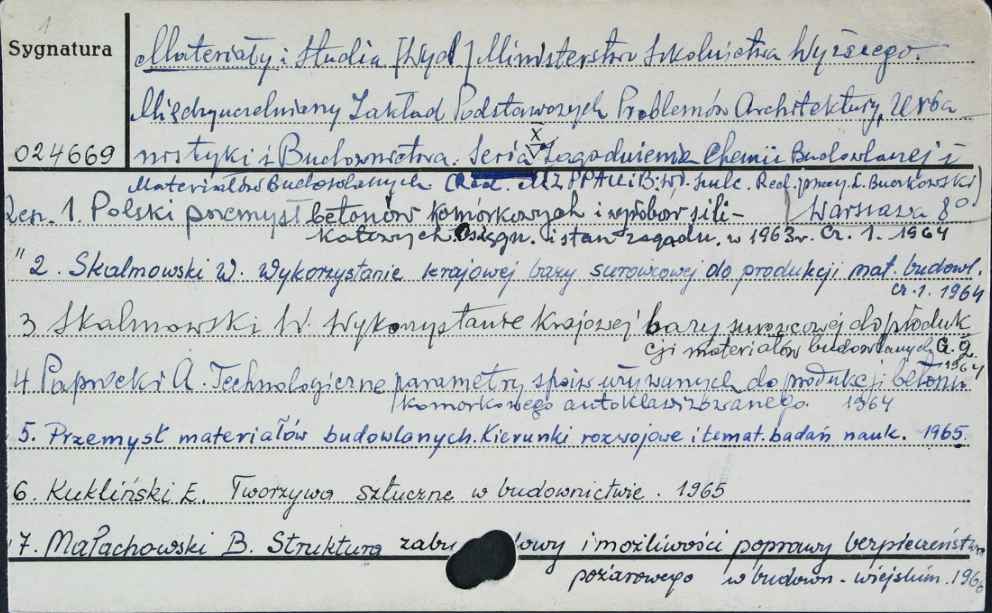 1
Sygnatura
024669
Materiały i Studia [Wyd] Ministerstwa Szkolnictwa Wyższego.
Międzyuczelniany Zakład Podstawowych Problemów Architektury, Urba
nistyki i Budownictwa. Seria Zagadnienia Chemii Budowlanej i
x
Materiałów Budowlanych (Red.
Warszawa 8°
1. Polski przemysł betonów komórkowych i wyrobów sili-
katowych. Osiągn. i stan zagadn. w 1963 r. Cz. 1. 1964
"2. Skalmowski W. Wykorzystanie krajowej bazy surowcowej do produkcji mat. budowl.
cz. 1. 1964
3 Skalmowski W. Wykorzystanie krajowej bazy surowcowej do produk
cji materiałów budowlanych Cz. 2.
1964
4. A. Technologiczne parametry spoiw używanych do produkcji betonu
komórkowego autoklawizowanego. 1964
5. Przemysł materiałów budowlanych. Kierunki rozwojowe i temat. badań nauk. 1965.
6. Kukliński E. Tworzywa sztuczne w budownictwie. 1965
7. Małachowski B. Struktura zabu dowy i możliwości poprawy bezpieczeństwa
pożarowego w budown. wiejskim. 1966